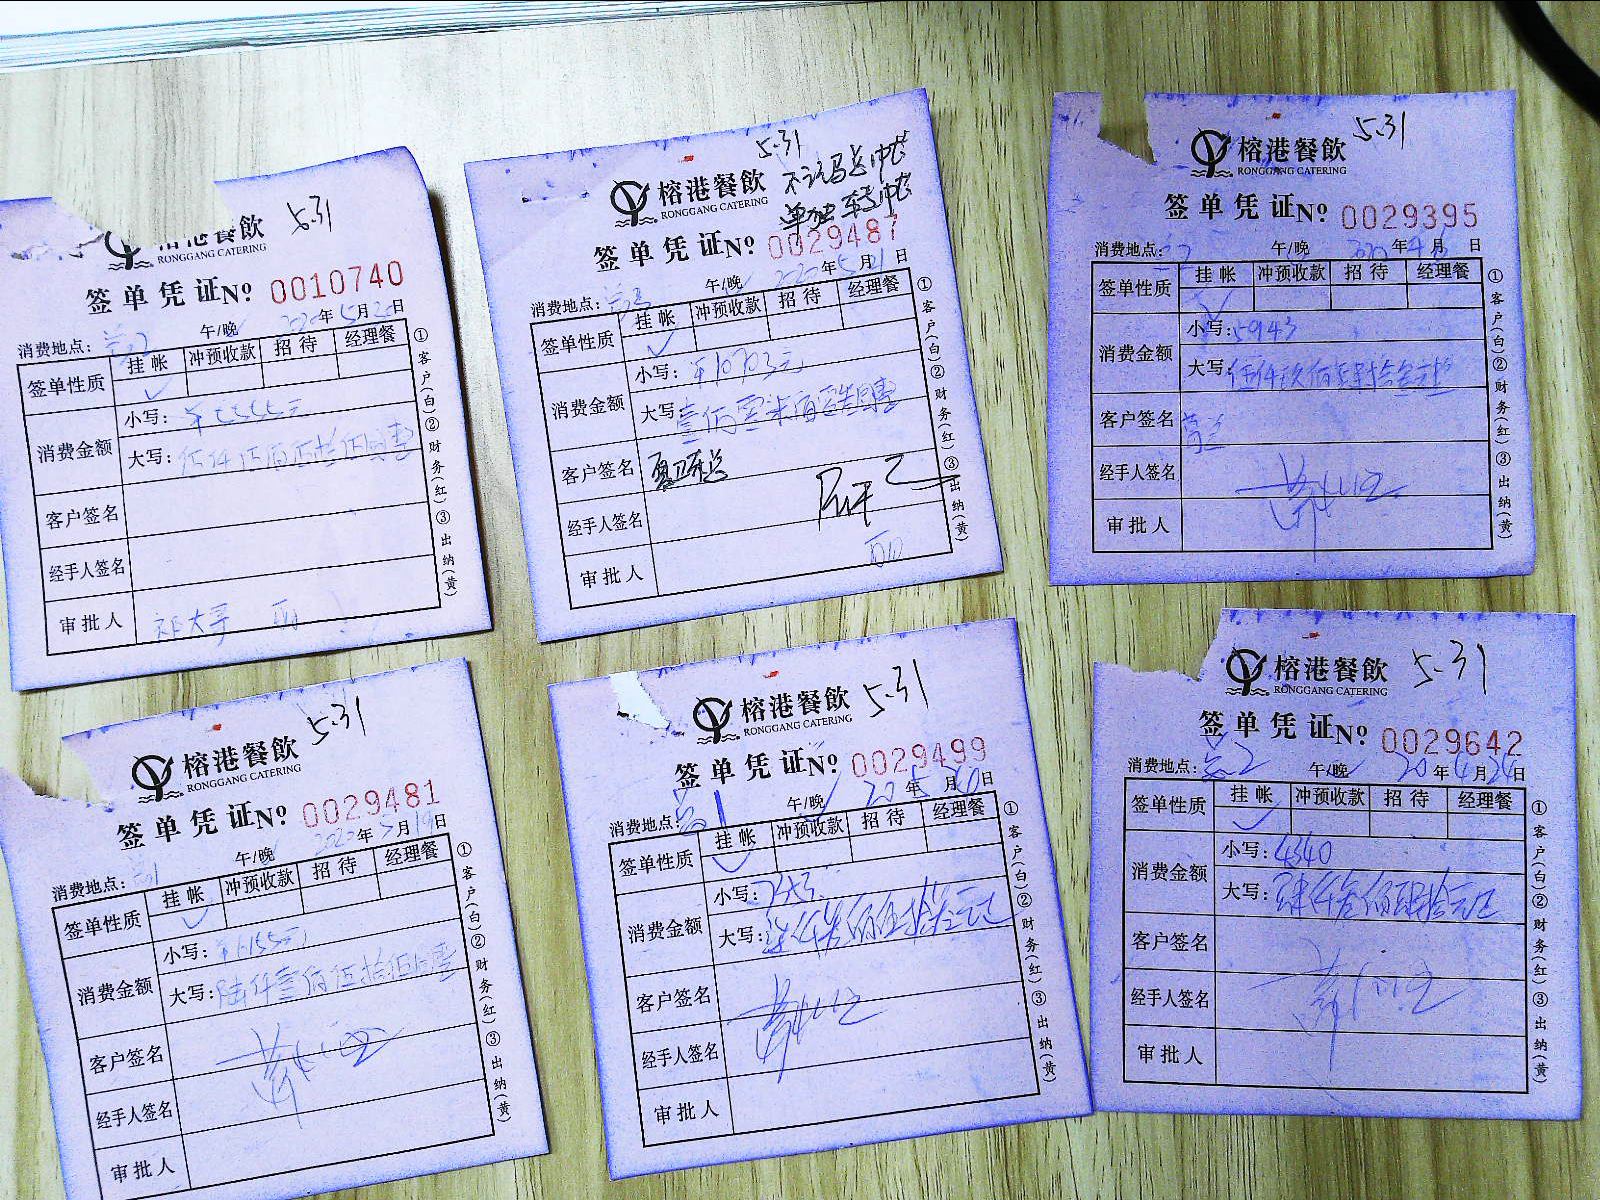 5.31
榕港餐飲
RONGGANG CATERING
签单凭证 № 0010740
消费地点: 午/晚 2020年5月20日
签单性质 挂帐 冲预收款 招待 经理餐
✓
消费金额 小写: ¥5555元
大写: 伍仟伍佰伍拾伍元整
客户签名
经手人签名
审批人
①客户(白)②财务(红)③出纳(黄)
5.31
榕港餐飲
RONGGANG CATERING
签单凭证 № 0029487
消费地点: 午/晚 2020年5月21日
签单性质 挂帐 冲预收款 招待 经理餐
✓
消费金额 小写:
大写:
客户签名
经手人签名
审批人
①客户(白)②财务(红)③出纳(黄)
5.31
榕港餐飲
RONGGANG CATERING
签单凭证 № 0029395
消费地点: 午/晚 2020年4月 日
签单性质 挂帐 冲预收款 招待 经理餐
✓
消费金额 小写: 5943
大写: 伍仟玖佰肆拾叁元整
客户签名
经手人签名
审批人
①客户(白)②财务(红)③出纳(黄)
5.31
榕港餐飲
RONGGANG CATERING
签单凭证 № 0029481
消费地点: 午/晚 2020年5月19日
签单性质 挂帐 冲预收款 招待 经理餐
✓
消费金额 小写: ¥6155元
大写: 陆仟壹佰伍拾伍元整
客户签名
经手人签名
审批人
①客户(白)②财务(红)③出纳(黄)
5.31
榕港餐飲
RONGGANG CATERING
签单凭证 № 0029499
消费地点: 午/晚 20年5月10日
签单性质 挂帐 冲预收款 招待 经理餐
✓
消费金额 小写:
大写:
客户签名
经手人签名
审批人
①客户(白)②财务(红)③出纳(黄)
5.31
榕港餐飲
RONGGANG CATERING
签单凭证 № 0029642
消费地点: 午/晚 20年4月24日
签单性质 挂帐 冲预收款 招待 经理餐
✓
消费金额 小写: 4340
大写: 肆仟叁佰肆拾元正
客户签名
经手人签名
审批人
①客户(白)②财务(红)③出纳(黄)